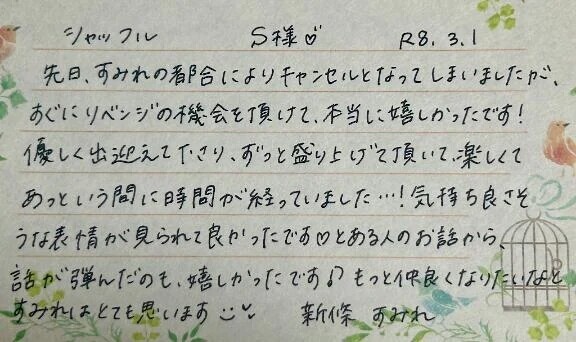 シャッフル S様♡ R8.3.1
先日、すみれの都合によりキャンセルとなってしまいましたが、
すぐにリベンジの機会を頂けて、本当に嬉しかったです!
優しく出迎えて下さり、ずっと盛り上げて頂いて、楽しくて
あっという間に時間が経っていました…!気持ち良さそ
うな表情が見られて良かったです♡とある人のお話から、
話が弾んだのも、嬉しかったです♪もっと仲良くなりたいなと
すみれはとても思います 新條 すみれ